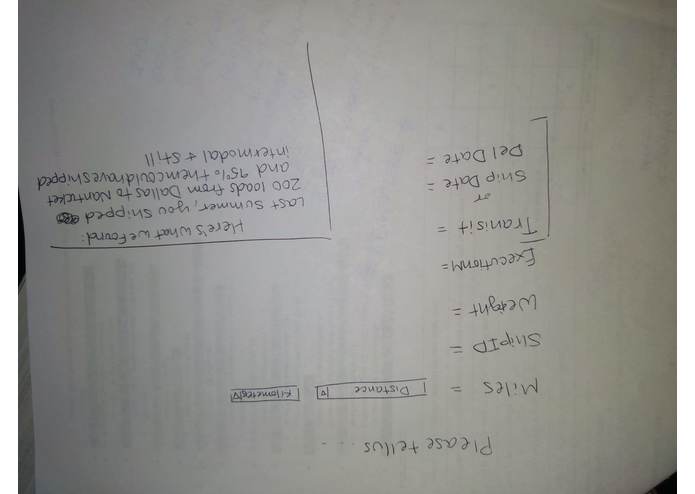 Please tell us ....
Miles = Distance Kilometers
ShipID =
Weight =
ExecutionM =
Transit =
or
Ship Date =
Del Date =
Here's what we found:
Last summer, you shipped
200 loads from Dallas to Nantucket
and 95% them could have shipped
intermodal + still